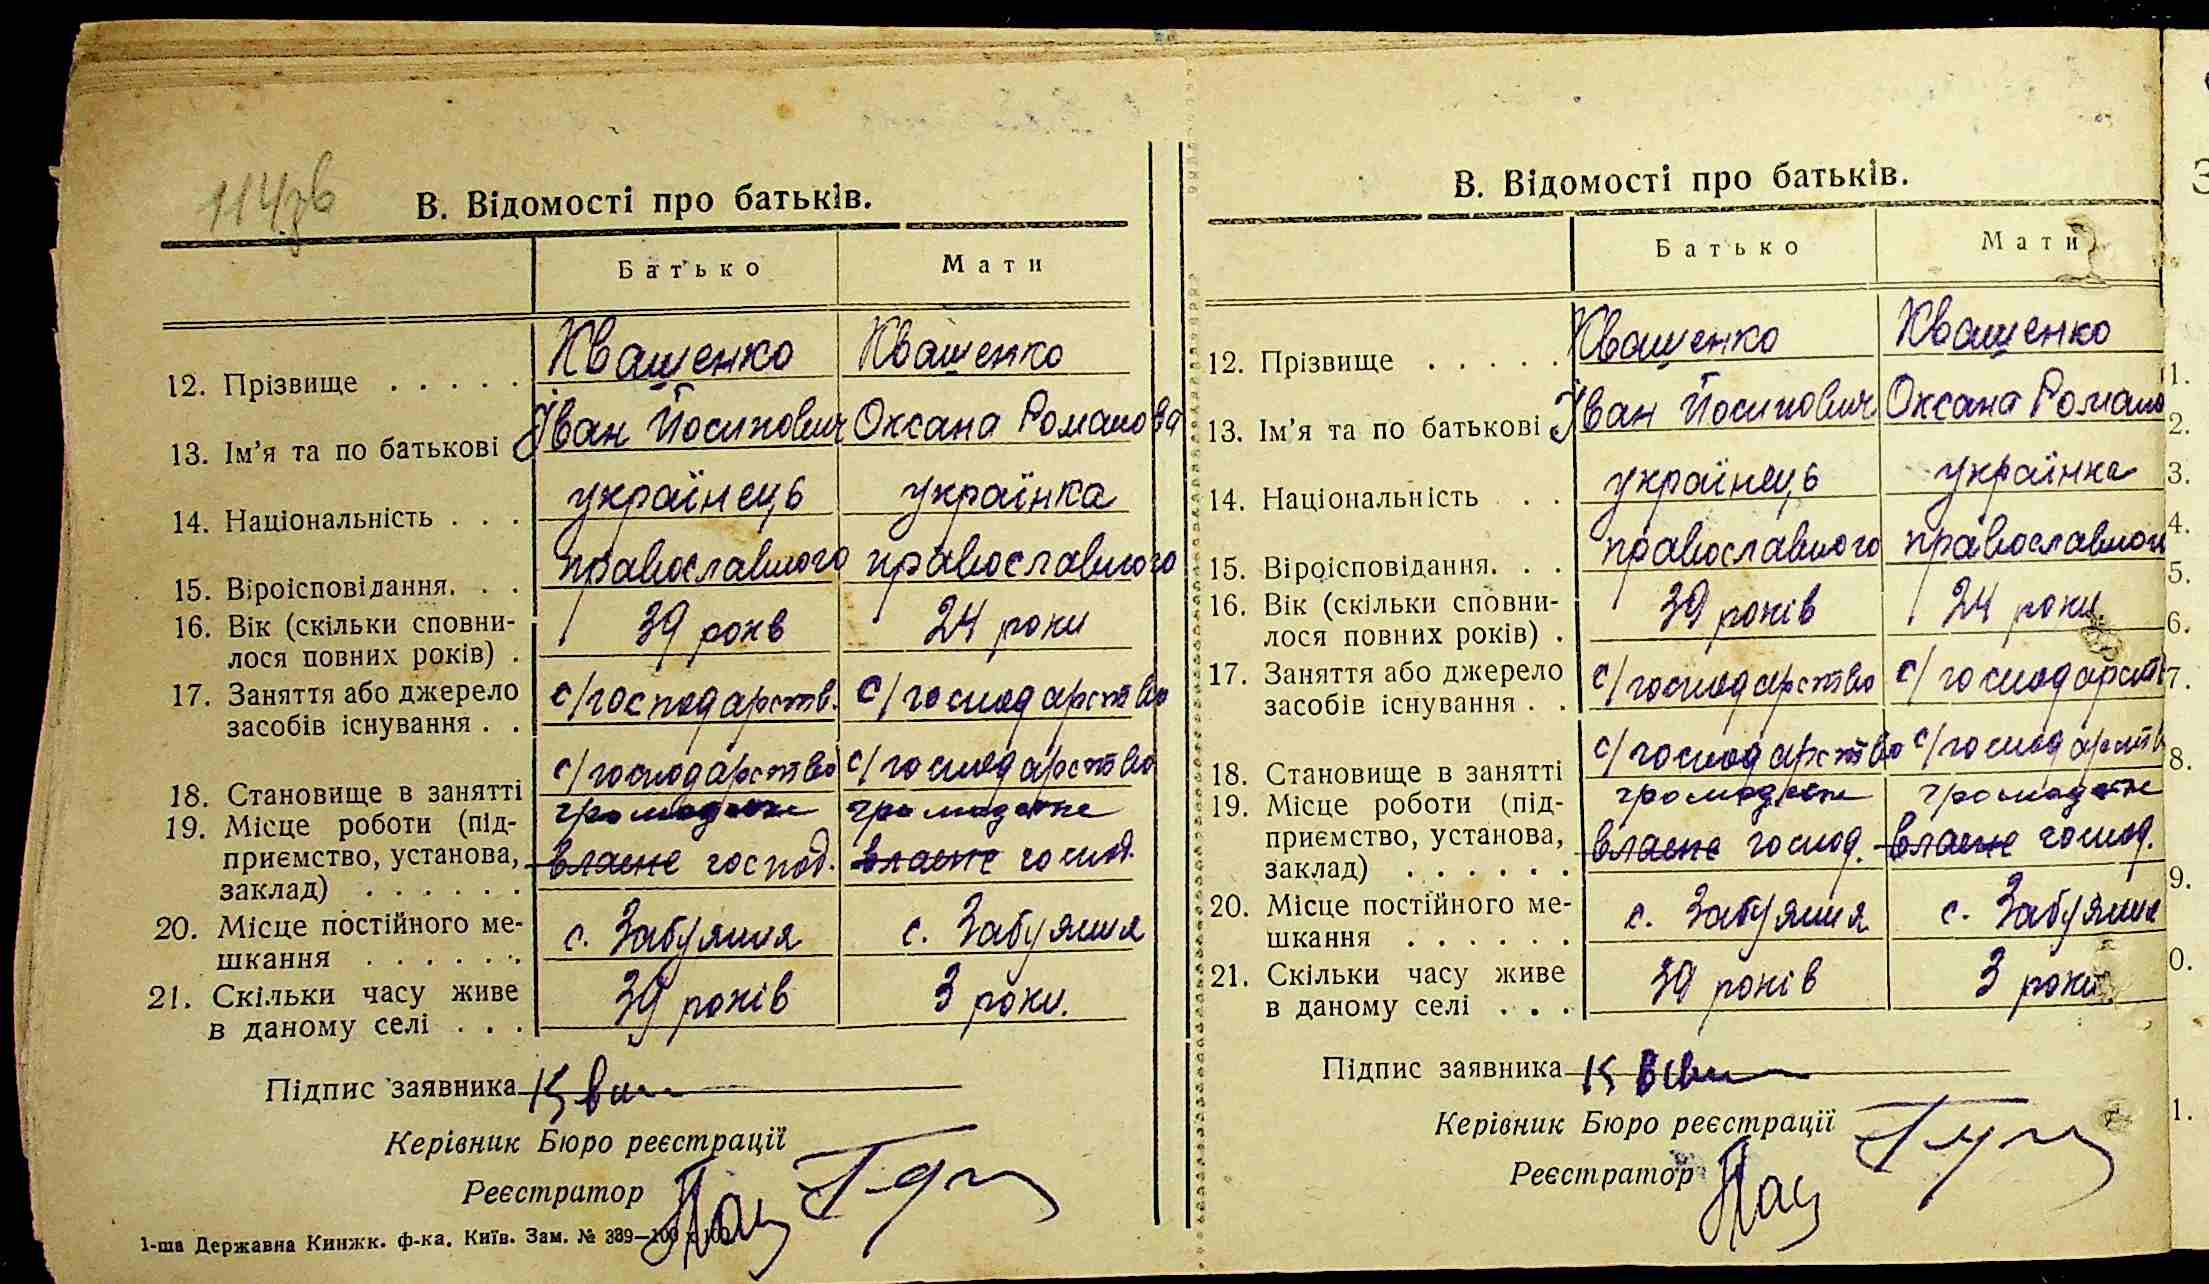 114зв
В. Відомості про батьків.
Батько Мати
12. Прізвище . . . . . Квашенко Квашенко
13. Ім'я та по батькові Іван Йосипович Оксана Романова
14. Національність . . . українець українка
15. Віроісповідання. . . православного православного
16. Вік (скільки сповни-
лося повних років) . 39 років 24 роки
17. Заняття або джерело
засобів існування . . с/господарств. с/господарство
18. Становище в занятті с/господарство с/господарство
19. Місце роботи (під- громадське громадське
приємство, установа, власне господ. власне господ.
заклад) . . . . . .
20. Місце постійного ме-
шкання . . . . . . с. Забуяння с. Забуяння
21. Скільки часу живе
в даному селі . . . 39 років 3 роки.
Підпис заявника Кваш
Керівник Бюро реєстрації
Реєстратор
1-ша Державна Кинжк. ф-ка. Київ. Зам. № 339—100
В. Відомості про батьків.
Батько Мати
12. Прізвище . . . . . Квашенко Квашенко
13. Ім'я та по батькові Іван Йосипович Оксана Романо
14. Національність . . українець українка
15. Віроісповідання. . . православного православног
16. Вік (скільки сповни-
лося повних років) . 39 років 24 роки
17. Заняття або джерело
засобів існування . . с/господарство с/господарств
18. Становище в занятті с/господарство с/господарств
19. Місце роботи (під- громадське громадське
приємство, установа, власне господ. власне господ.
заклад) . . . . . .
20. Місце постійного ме-
шкання . . . . . . с. Забуяння с. Забуяння
21. Скільки часу живе
в даному селі . . . 39 років 3 роки
Підпис заявника
Керівник Бюро реєстрації
Реєстратор